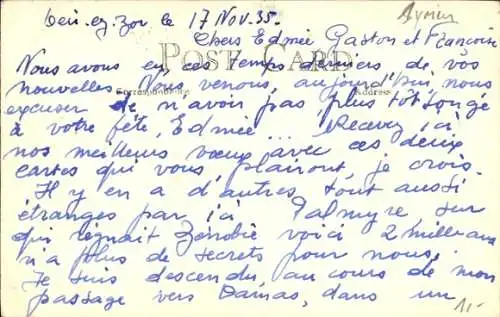 Deir-ez-Zor le 17 Nov. 35.
Chers Edmée Gaston et Françoise
POST CARD
Nous avons eu, ces temps derniers de vos
nouvelles. Nous venons, aujourd'hui, nous
Correspondence Address
excuser de n'avoir pas plus tôt songé
à votre fête, Edmée... Recevez ici
nos meilleurs vœux avec ces deux
cartes qui vous plairont, je crois.
Il y en a d'autres tout aussi
étranges par ici. Palmyre sur
qui régnait Zénobie voici 2 milleans
n'a plus de secrets pour nous.
Je suis descendu, au cours de mon
passage vers Damas, dans un
1.-